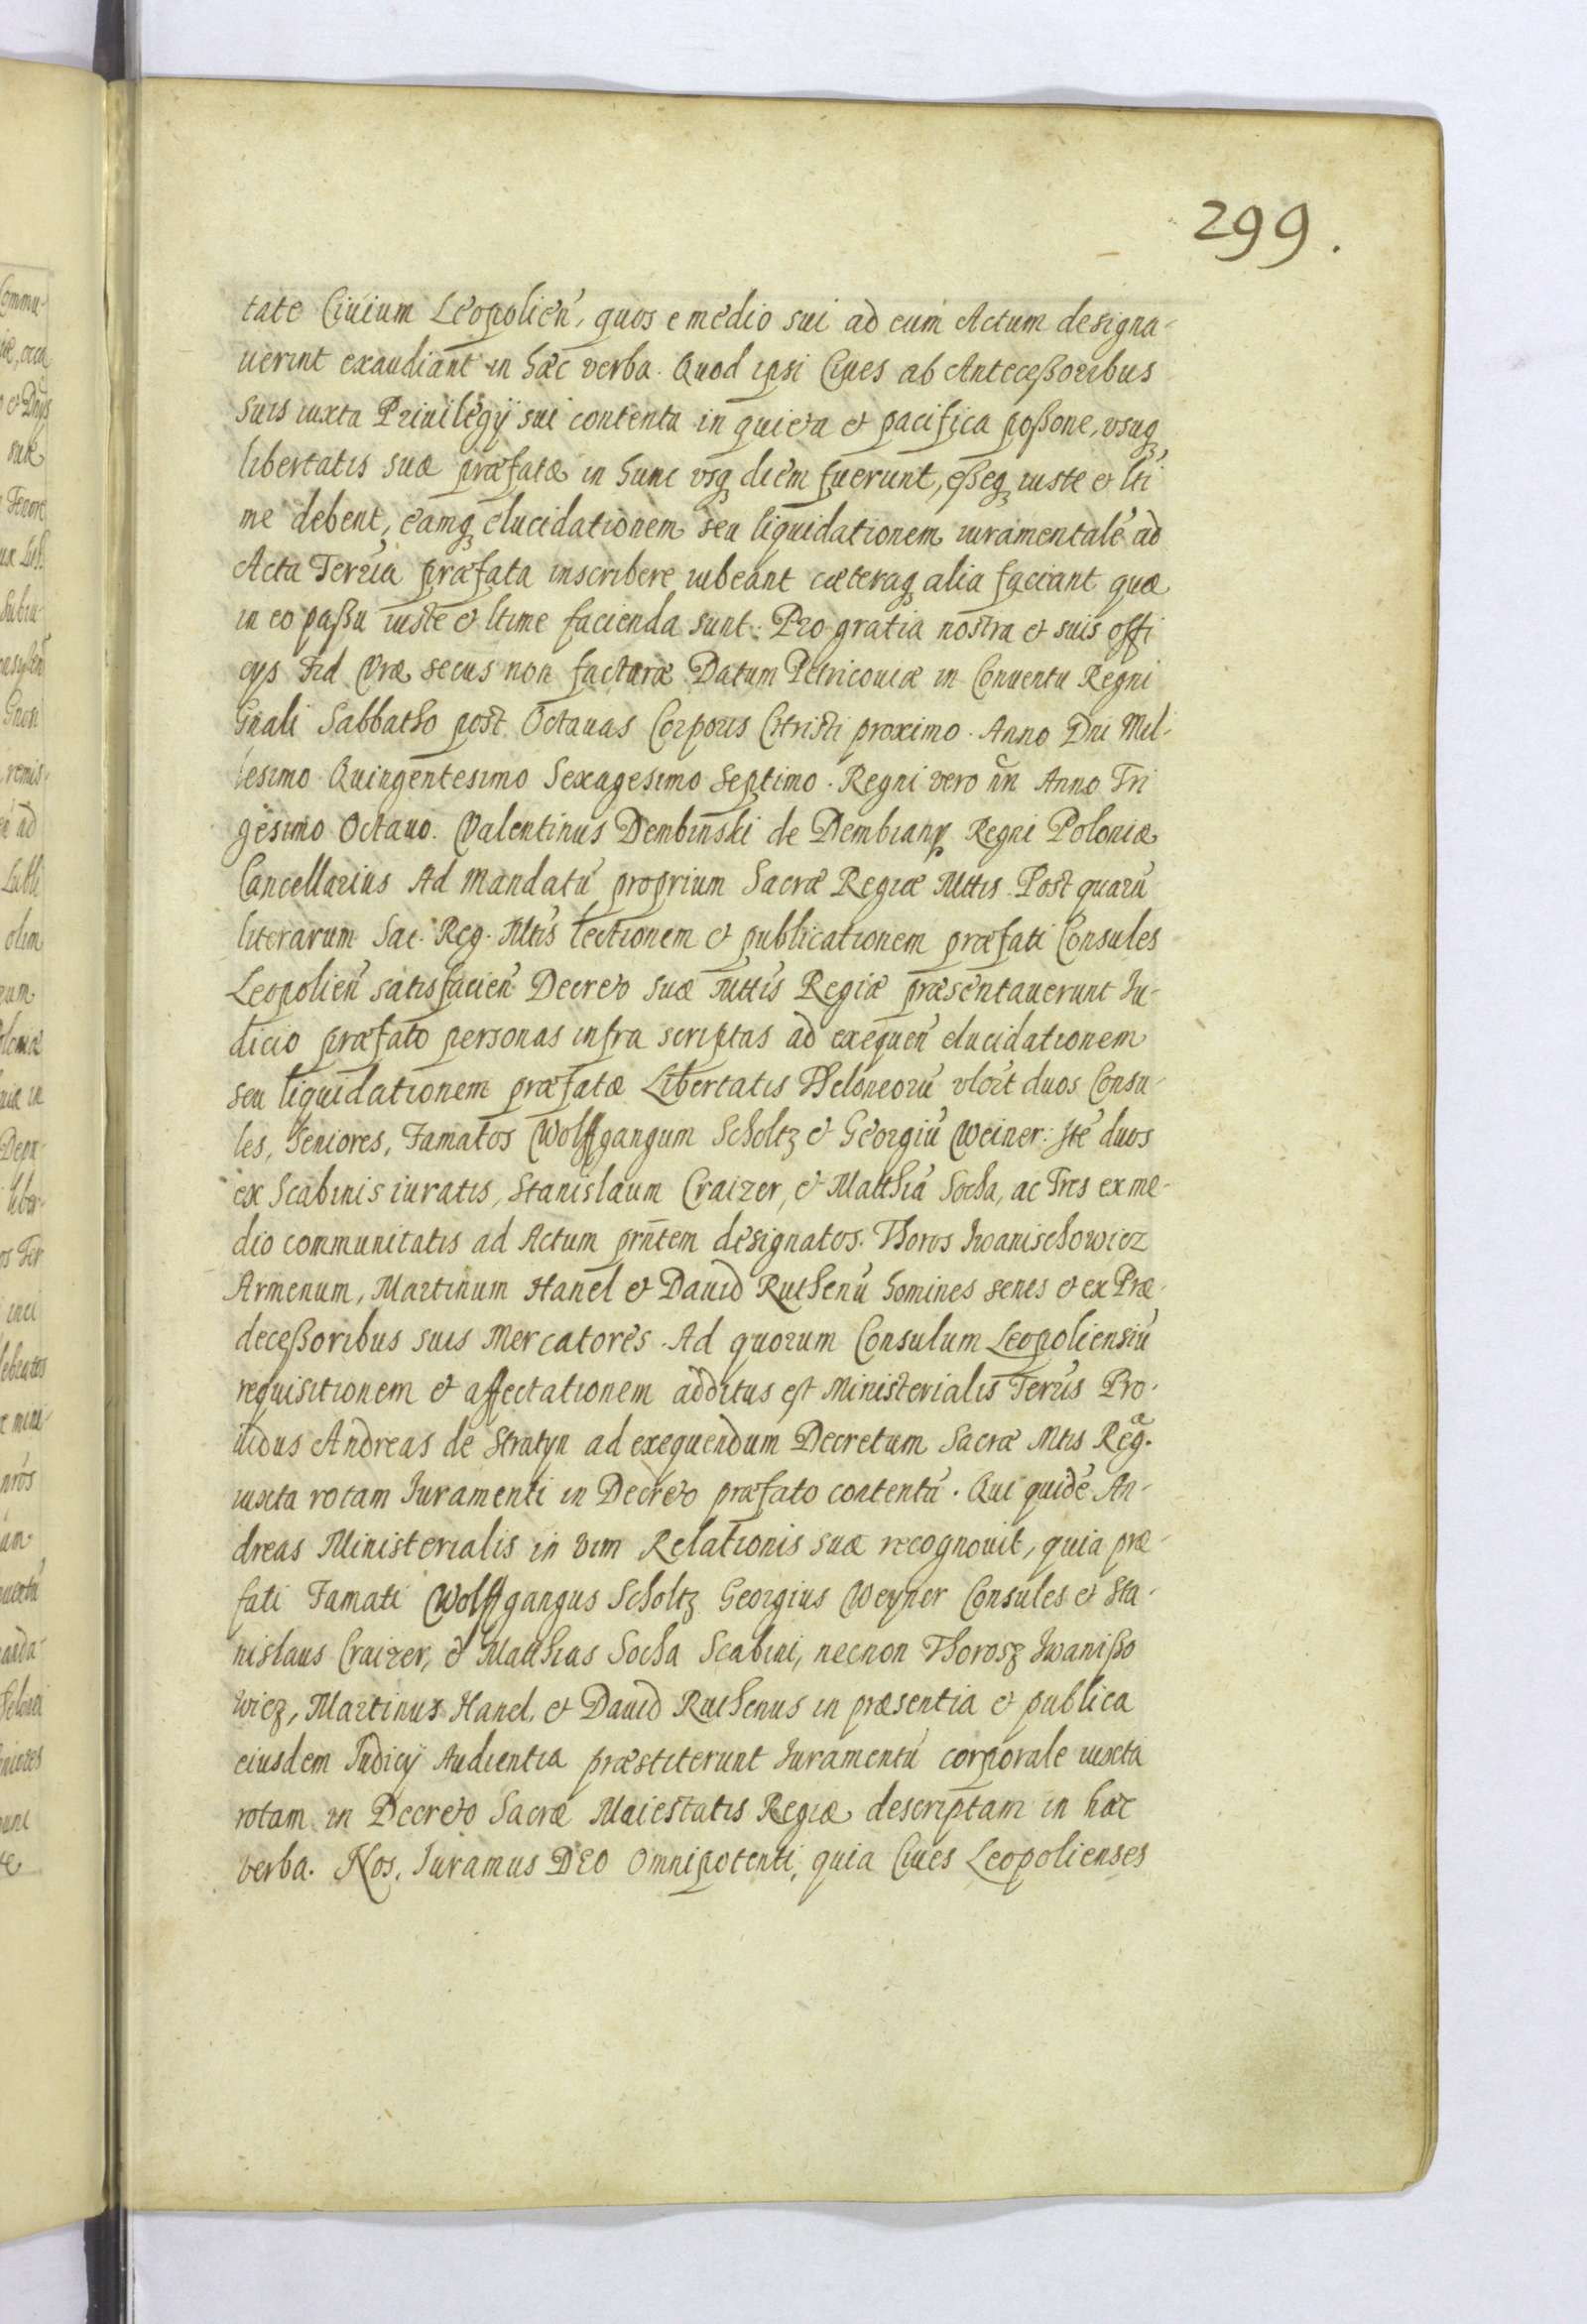 299.
tate Ciuium Leopolień, quos e medio sui ad eum Actum designa-
uerint exaudiant in hæc verba. Quod ipsi Ciues ab Anteceßoribus
suis iuxta Priuilegÿ sui contenta in quieta et pacifica poßone, vsuq;
libertatis suæ præfatæ in hunc vsq; diem fuerunt, eßeq; iuste et lti
me debent, eamq; elucidationem seu liquidationem iuramentalé ad
Acta Terría præfata inscribere iubeant cæteraq; alia faciant quæ
in eo paßu iuste et ltime facienda sunt: Pro gratia nostra et suis offi
cÿs Fid Vræ secus non facturæ Datum Petricouiæ in Conuentu Regni
Gnali Sabbatho post Octauas Corporis Christi proximo. Anno Dni Mil-
lesimo Quingentesimo Sexagesimo Septimo. Regni vero nn Anno Tri
gesimo Octauo. Valentinus Dembinski de Dembiany Regni Poloniæ
Cancellarius Ad mandatú proprium Sacræ Regiæ Mttis. Post quarú
literarum Sac. Reg. Mtis lectionem et publicationem præfati Consules
Leopolień satisfacień Decreto suæ Mttis Regiæ præsentauerunt Iu-
dicio præfato personas infra scriptas ad exequeń elucidationem
seu liquidationem præfatæ Libertatis Theloneorú vlczt duos Consu-
les, Seniores, Famatos Wolffgangum Scholtz et Georgiú Weiner: Ité duos
ex Scabinis iuratis, Stanislaum Craizer, et Matthiá Socha, ac Tres ex me-
dio communitatis ad Actum prñtem designatos. Thoros Iwanischowicz
Armenum, Martinum Hanel et Dauid Ruthenú homines senes et ex Præ-
deceßoribus suis Mercatores. Ad quorum Consulum Leopoliensiú
requisitionem et affectationem additus est Ministerialis Terrís Pro-
uidus Andreas de Stratyn ad exequendum Decretum Sacræ Mtis Reg.æ
iuxta rotam Iuramenti in Decreto præfato contentá. Qui quidé An-
dreas Ministerialis in vim Relationis suæ recognouit, quia præ-
fati Famati Wolffgangus Scholtz Georgius Weyner Consules et Sta-
nislaus Craizer, et Matthias Socha Scabini, necnon Thorosz Iwanißo
wicz, Martinus Hanel, et Dauid Ruthenus in præsentia et publica
eiusdem Iudicÿ Audientia præstiterunt Iuramentú corporale iuxta
rotam in Decreto Sacræ Maiestatis Regiæ descriptam in hæc
verba. Nos, Iuramus DEO Omnipotenti, quia Ciues Leopolienses